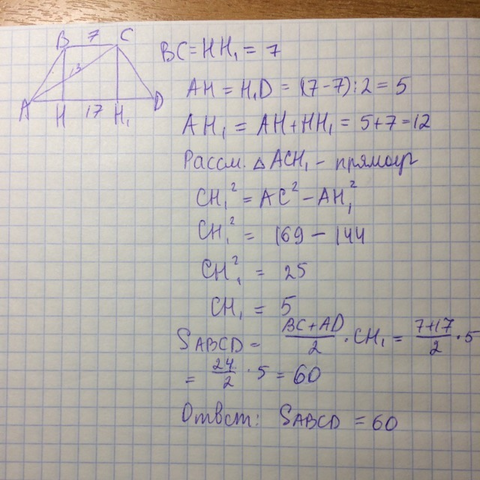 B 7 C
13
A H 17 H₁ D
BC = HH₁ = 7
AH = H₁D = (17-7):2 = 5
AH₁ = AH + HH₁ = 5+7=12
Рассм. △ACH₁ - прямоуг
CH₁² = AC² - AH₁²
CH₁² = 169 - 144
CH₁² = 25
CH₁ = 5
SABCD = (BC+AD)/2 · CH₁ = (7+17)/2 · 5
= 24/2 · 5 = 60
Ответ: SABCD = 60